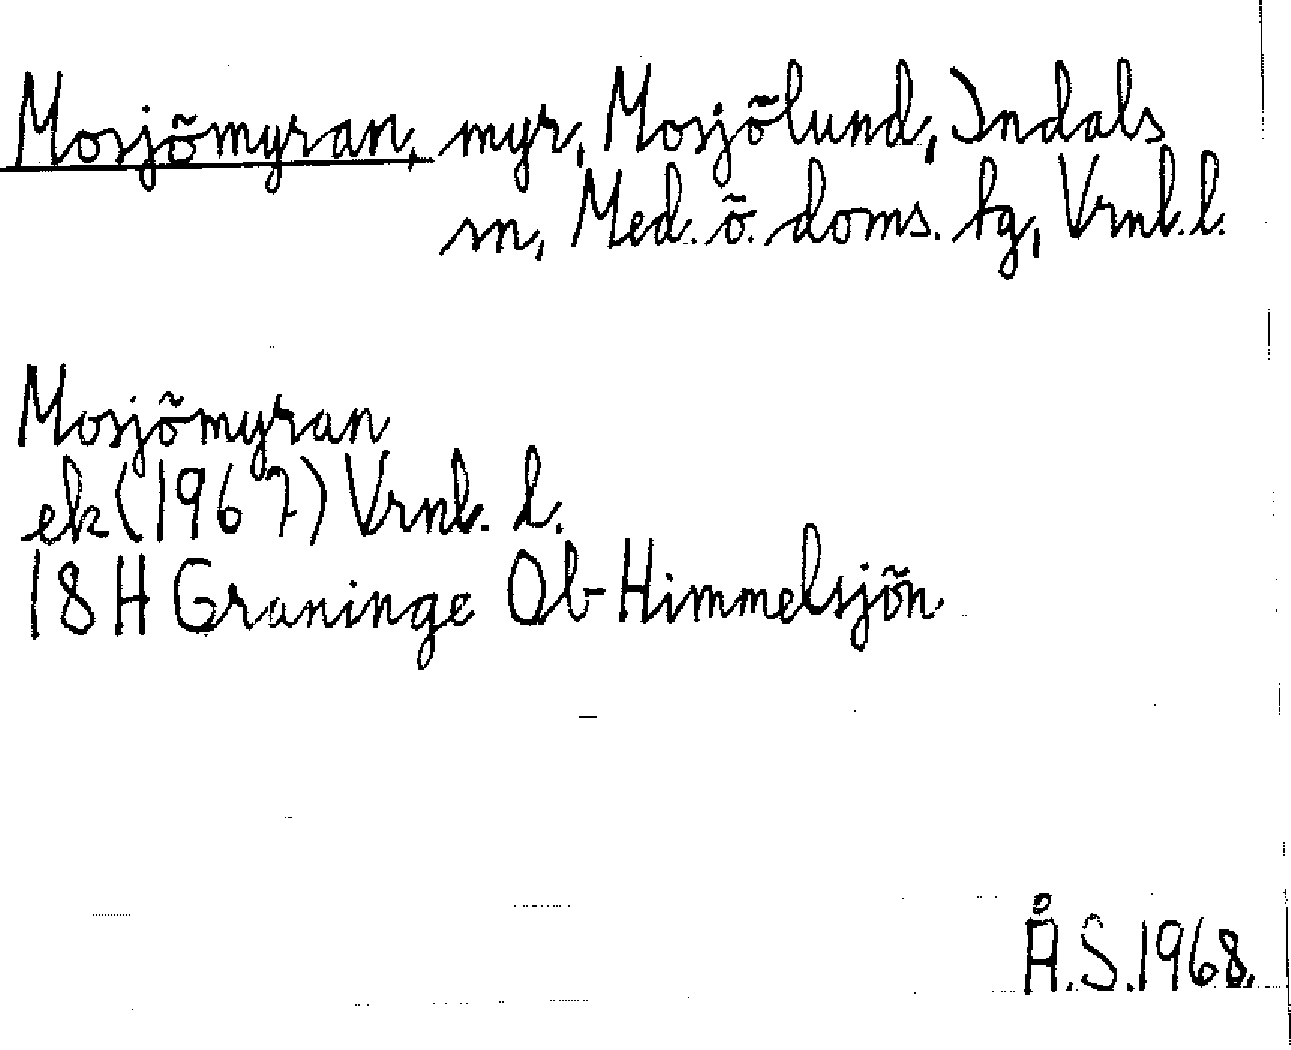 Mosjömyran, myr, Mosjölund, Indals
sn, Med. ö. doms. tg, Vrnl. l.
Mosjömyran
ek (1967) Vrnl. l.
18H Graninge Ob-Himmelsjön
Å.S.1968.